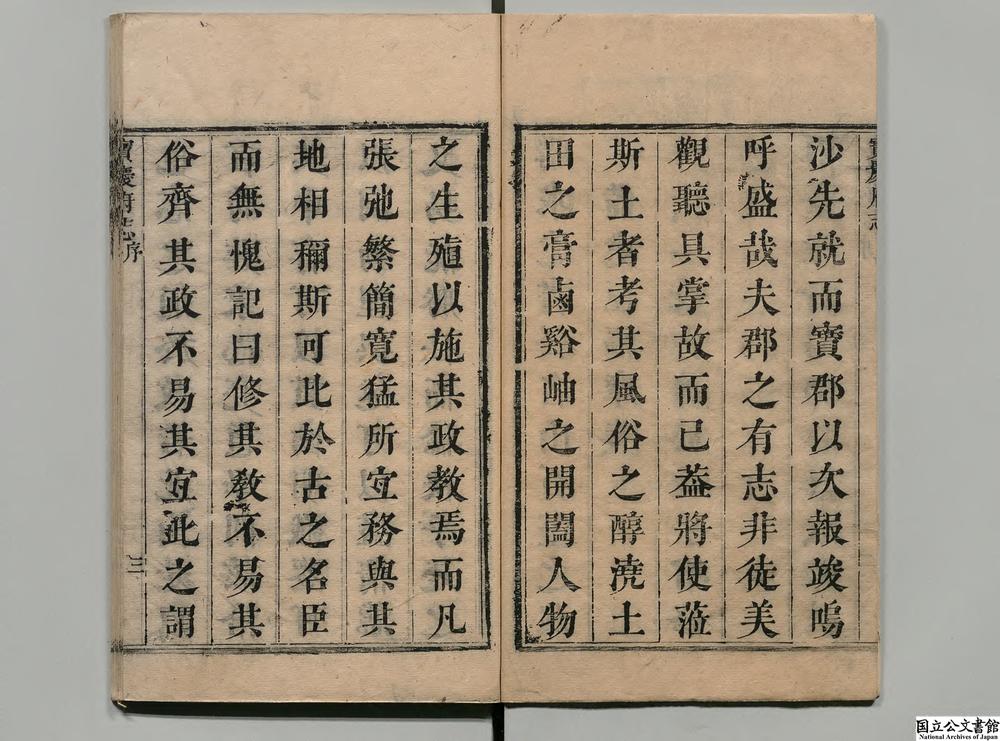 沙先就而寶郡以次報竣嗚
呼盛哉夫郡之有志非徒美
觀聽具掌故而已葢將使蒞
斯土者考其風俗之醇澆土
田之膏鹵谿岫之開闔人物
之生殖以施其政教焉而凡
張弛繁簡寛猛所宜務與其
地相稱斯可比於古之名臣
而無愧記曰修其教不易其
俗齊其政不易其宜此之謂
寶慶府志序
三
国立公文書館
National Archives of Japan